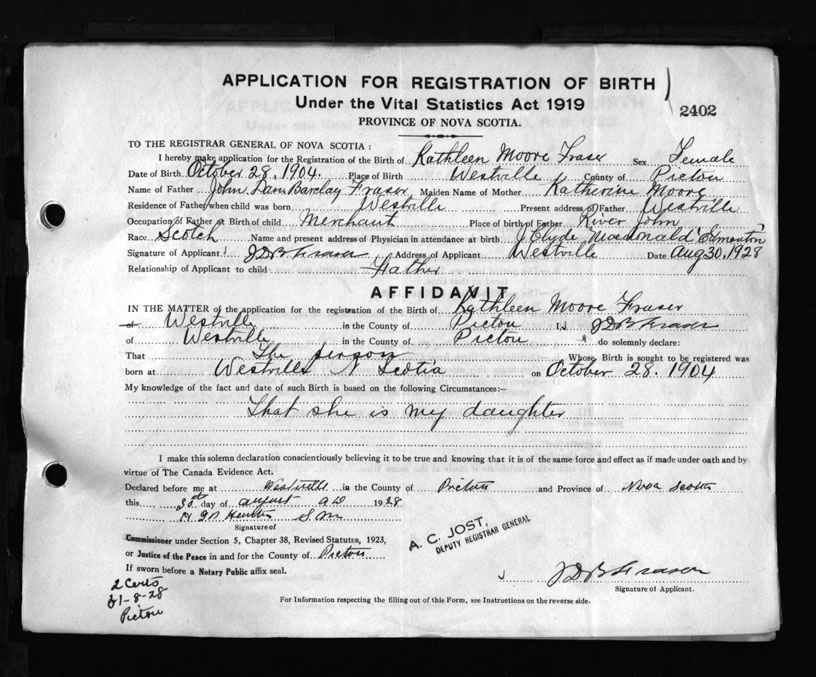 APPLICATION FOR REGISTRATION OF BIRTH
Under the Vital Statistics Act 1919
2402
PROVINCE OF NOVA SCOTIA.
TO THE REGISTRAR GENERAL OF NOVA SCOTIA:
I hereby make application for the Registration of the Birth of Kathleen Moore Fraser Sex Female
Date of Birth October 28, 1904. Place of Birth Westville County of Pictou
Name of Father John Barclay Fraser Maiden Name of Mother Katherine Moore
Residence of Father when child was born Westville Present address of Father Westville
Occupation of Father at Birth of child Merchant Place of birth of Father River John
Race Scotch Name and present address of Physician in attendance at birth J Clyde Macdonald Edmonton
Signature of Applicant J D B Fraser Address of Applicant Westville Date Aug 30, 1928
Relationship of Applicant to child Father
AFFIDAVIT
IN THE MATTER of the application for the registration of the Birth of Kathleen Moore Fraser
of Westville in the County of Pictou I, J D B Fraser
of Westville in the County of Pictou do solemnly declare:
That The person Whose Birth is sought to be registered was
born at Westville N Scotia on October 28. 1904
My knowledge of the fact and date of such Birth is based on the following Circumstances:-
That she is my daughter
I make this solemn declaration conscientiously believing it to be true and knowing that it is of the same force and effect as if made under oath and by
virtue of The Canada Evidence Act.
Declared before me at Westville in the County of Pictou and Province of Nova Scotia
this 30th day of August A D 1928
S M
Signature of
Commissioner under Section 5, Chapter 38, Revised Statutes, 1923,
or Justice of the Peace in and for the County of Pictou
If sworn before a Notary Public affix seal.
A. C. JOST,
DEPUTY REGISTRAR GENERAL
J D B Fraser
Signature of Applicant.
2 Certs
31-8-28
Pictou
For Information respecting the filling out of this Form, see Instructions on the reverse side.